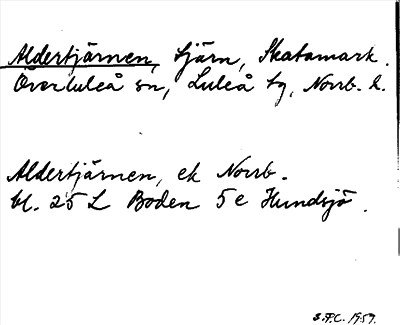 Aldertjärnen, tjärn, Skatamark.
Överluleå sn, Luleå tg, Norrb. l.
Aldertjärnen, ek Norrb.
bl. 25 L Boden 5 e Hundsjö.
S.P.C. 1959.